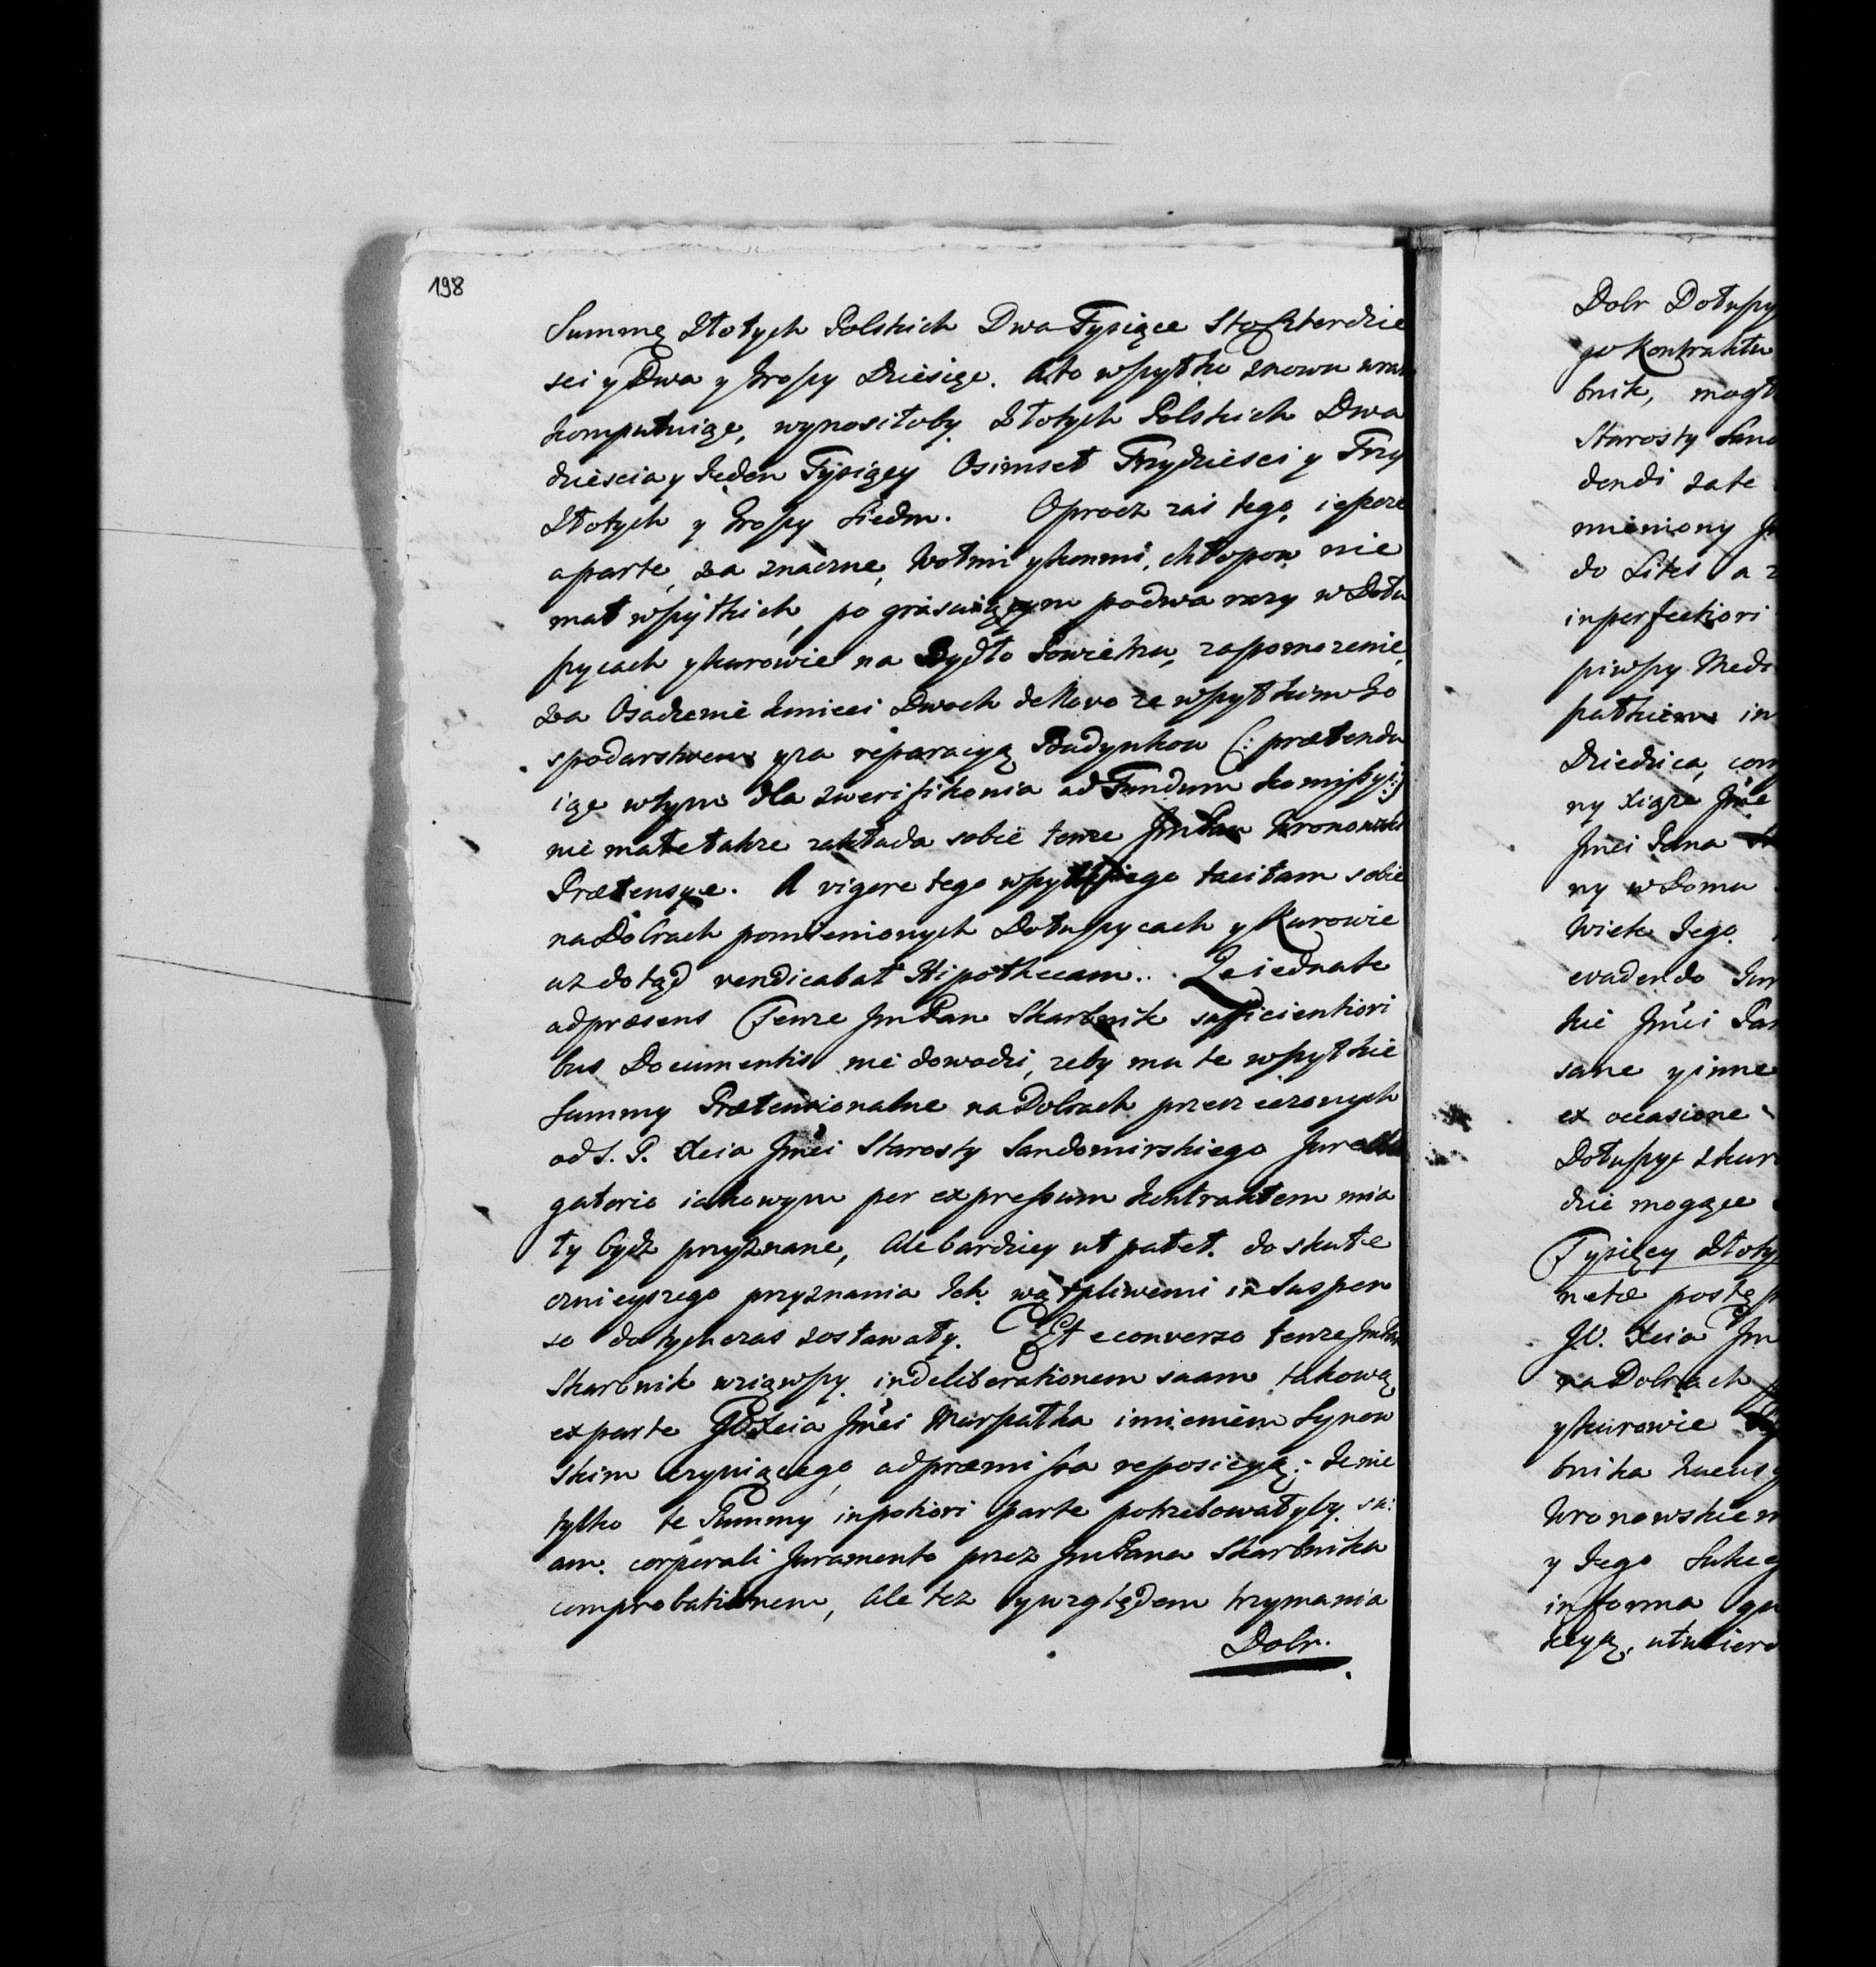 198
Summę Złotych Polskich Dwa Tysiące Sto Czterdzie
sci y Dwa y Groszy Dziesięc. A to wszytko znowu wraz
komputuiąc, wynosiłoby Złotych Polskich Dwa
dziescia y Jeden Tysięcy Osimset Trzydziesci y Trzy
Złotych y Groszy Siedm. Oprocz zas tego, ieszcze
aparte, za znaczne, Wołmi y konmi, chłopow nie
mal wszytkich, po grasuiącym podwa razy w Dołu
szycach y Kurowie na Bydło Powietrzu, zapomozenie,
za Osadzenie kmieci Dwoch de Novo ze wszytkim Go
spodarstwem y za reparacyą Budynkow (: prætendu
iąc wtym dla zweryfikowania ad Fundum Komissyi :)
nie małe takze zakłada sobie tenze JmPan Wronowski
Prætensye. A vigore tego wszytkiego tacitam sobie
na Dobrach pomienionych Dołuszycach y Kurowie
az dotąd vendicabat Hipothecam. Ze iednak
adpræsens Tenze JmPan Skarbnik sufficientiori
bus Documentis nie dowodzi, zeby mu te wszytkie
Summy Prætensionalne na Dobrach przerzeczonych
od S. P. Xcia Jmci Starosty Sandomirskiego Jure
gatorio iakowym per expressum kontraktem mia
ły bydz przyznane, Ale bardziey ut patet. do skute
cznieyszego przyznania Ich wątpliwemi in Suspen
so dotychczas zostawały. Et econverso tenze JmPan
Skarbnik wziąwszy in deliberationem suam takową
ex parte JOXcia Jmci Marszałka imieniem Synow
skim czyniącego, ad præmissa reposicyą; Ze nie
tylko te Summy in potiori parte potrzebowałyby su
am. corporali Juramento przez JmPana Skarbnika
comprobationem, Ale tez y względem trzymania
Dobr.
Dobr Dołuszy
go Kontraktu
bnik, mogł
Starosty San
dendi zate
mieniony
do Lites a
in perfectiori
piwszy Medi
Dziedzica, com
ny Xiąze Jmc
Jmci Pana
ny w Domu
Wiek Jego
evadendo Jur
kie Jmci Pan
sane y inne
ex occasione
Dołuszyc y Kur
dzie mogące
Tysięcy Złoty
netæ postęp
JO. Xcia Jm
na Dobrach
y Kurowie
bnika
Wronowskiem
y Jego Sukc
in forma
utwierd